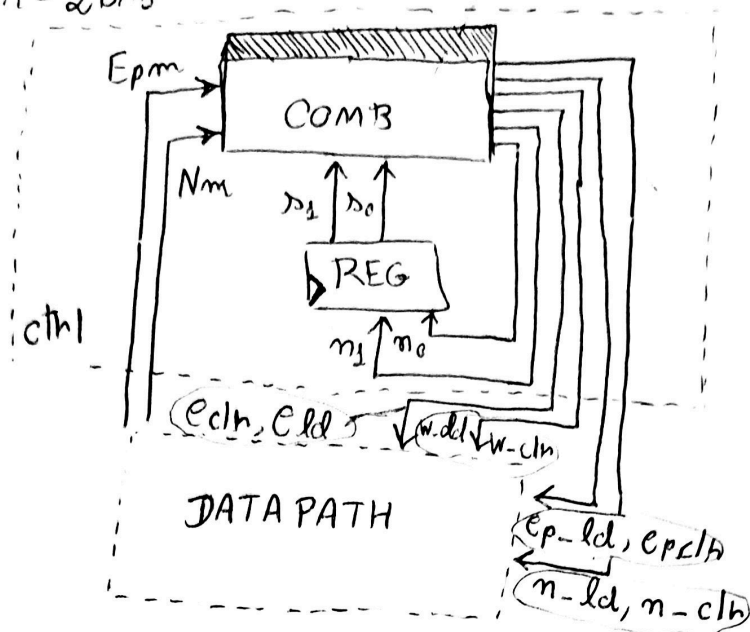 Epm
COMB
Nm
s1 s0
REG
cthl
n1 n0
eclh, eld
w-dd w-clh
DATAPATH
ep-ld, epclh
n-ld, n-clh